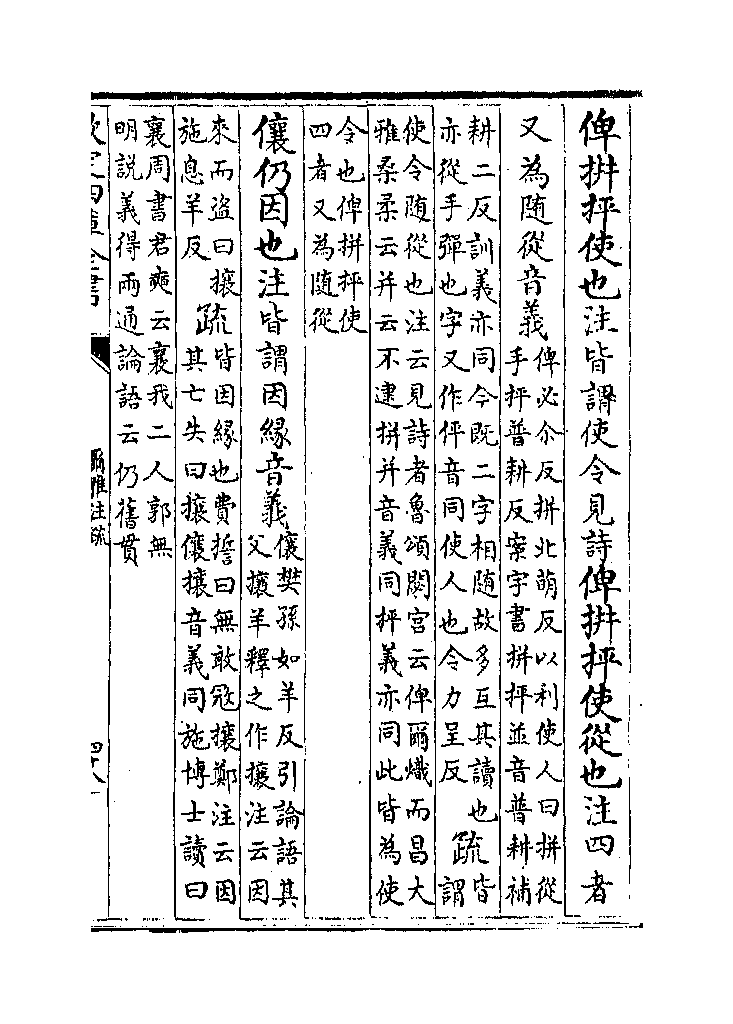 俾拼抨使也注皆謂使令見詩俾拼抨使從也注四者
又為随從音義
俾必尒反拼北萌反以利使人曰拼從
手抨普耕反案字書拼抨並音普耕補
耕二反訓義亦同今既二字相随故多互其讀也
亦從手彈也字又作伻音同使人也令力呈反
疏
皆
謂
使令随從也注云見詩者魯頌閟宮云俾爾熾而昌大
雅桑柔云并云不逮拼并音義同抨義亦同此皆為使
令也俾拼抨使
四者又為随從
儴仍因也注皆謂因緣音義
儴樊孫如羊反引論語其
父攘羊釋之作攘注云因
來而盜曰攘
施息羊反
疏
皆因緣也費誓曰無敢寇攘鄭注云因
其亡失曰攘儴攘音義同施博士讀曰
襄周書君奭云襄我二人郭無
明説義得兩通論語云仍舊貫
欽定四庫全書
爾雅注疏